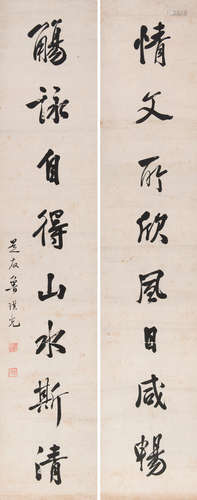 情文所欣風日咸暢
觴詠自得山水斯清